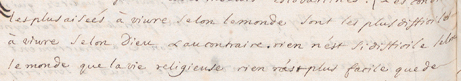 les plus aisées à viure selon le monde sont les plus difficiles
à viure selon Dieu, & au contraire. rien n'est si difficile selon
le monde que la vie religieuse rien n'est plus facile que de